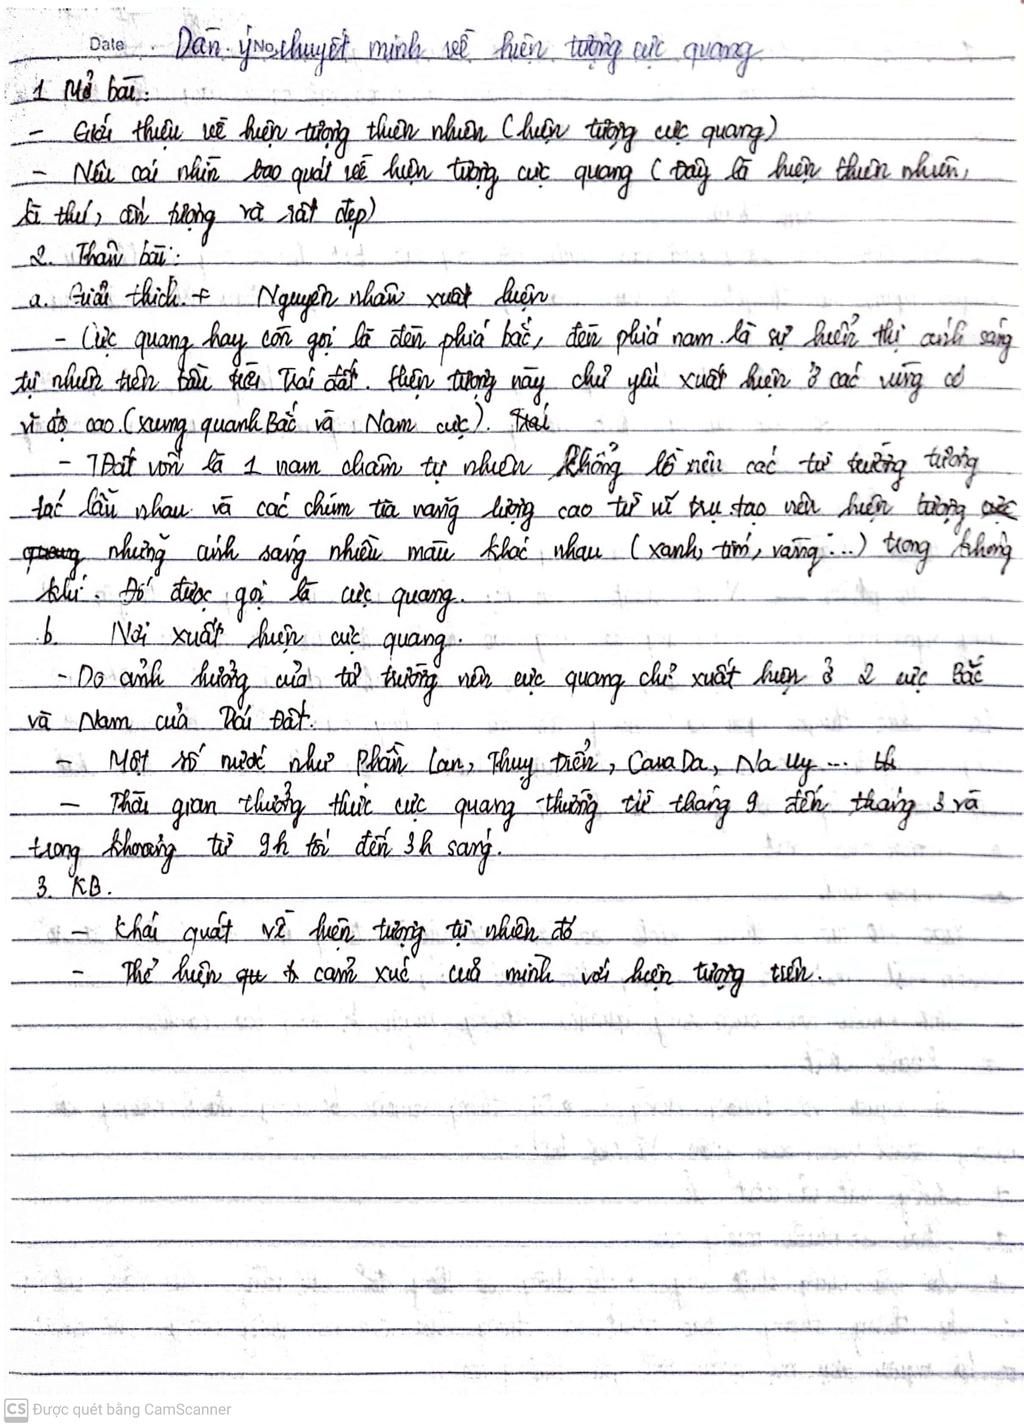 Date
No.
Dàn ý thuyết minh về hiện tượng cực quang
1 Mở bài:
- Giới thiệu về hiện tượng thiên nhiên (hiện tượng cực quang)
- Nêu cái nhìn bao quát về hiện tượng cực quang (Đây là hiện thiên nhiên,
kì thú, ấn tượng và rất đẹp)
2. Thân bài:
a. Giải thích + Nguyên nhân xuất hiện
- Cực quang hay còn gọi là đèn phía bắc, đèn phía nam là sự hiển thị ánh sáng
tự nhiên trên bầu trời Trái đất. Hiện tượng này chủ yếu xuất hiện ở các vùng có
vĩ độ cao. (xung quanh Bắc và Nam cực). Trái
- TĐất vốn là 1 nam châm tự nhiên khổng lồ nên các từ trường tương
tác lẫn nhau và các chùm tia năng lượng cao từ vũ trụ tạo nên hiện tượng cực
quang những ánh sáng nhiều màu khác nhau (xanh, tím, vàng...) trong không
khí. Đó được gọi là cực quang.
b. Nơi xuất hiện cực quang.
- Do ảnh hưởng của từ trường nên cực quang chỉ xuất hiện ở 2 cực Bắc
và Nam của Trái Đất.
- Một số nước như Phần Lan, Thụy Điển, CanaDa, Na Uy...
- Thời gian thưởng thức cực quang thường từ tháng 9 đến tháng 3 và
trong khoảng từ 9h tối đến 3h sáng.
3. KB.
- Khái quát về hiện tượng tự nhiên đó
- Thể hiện cảm xúc của mình với hiện tượng trên.
CS Được quét bằng CamScanner